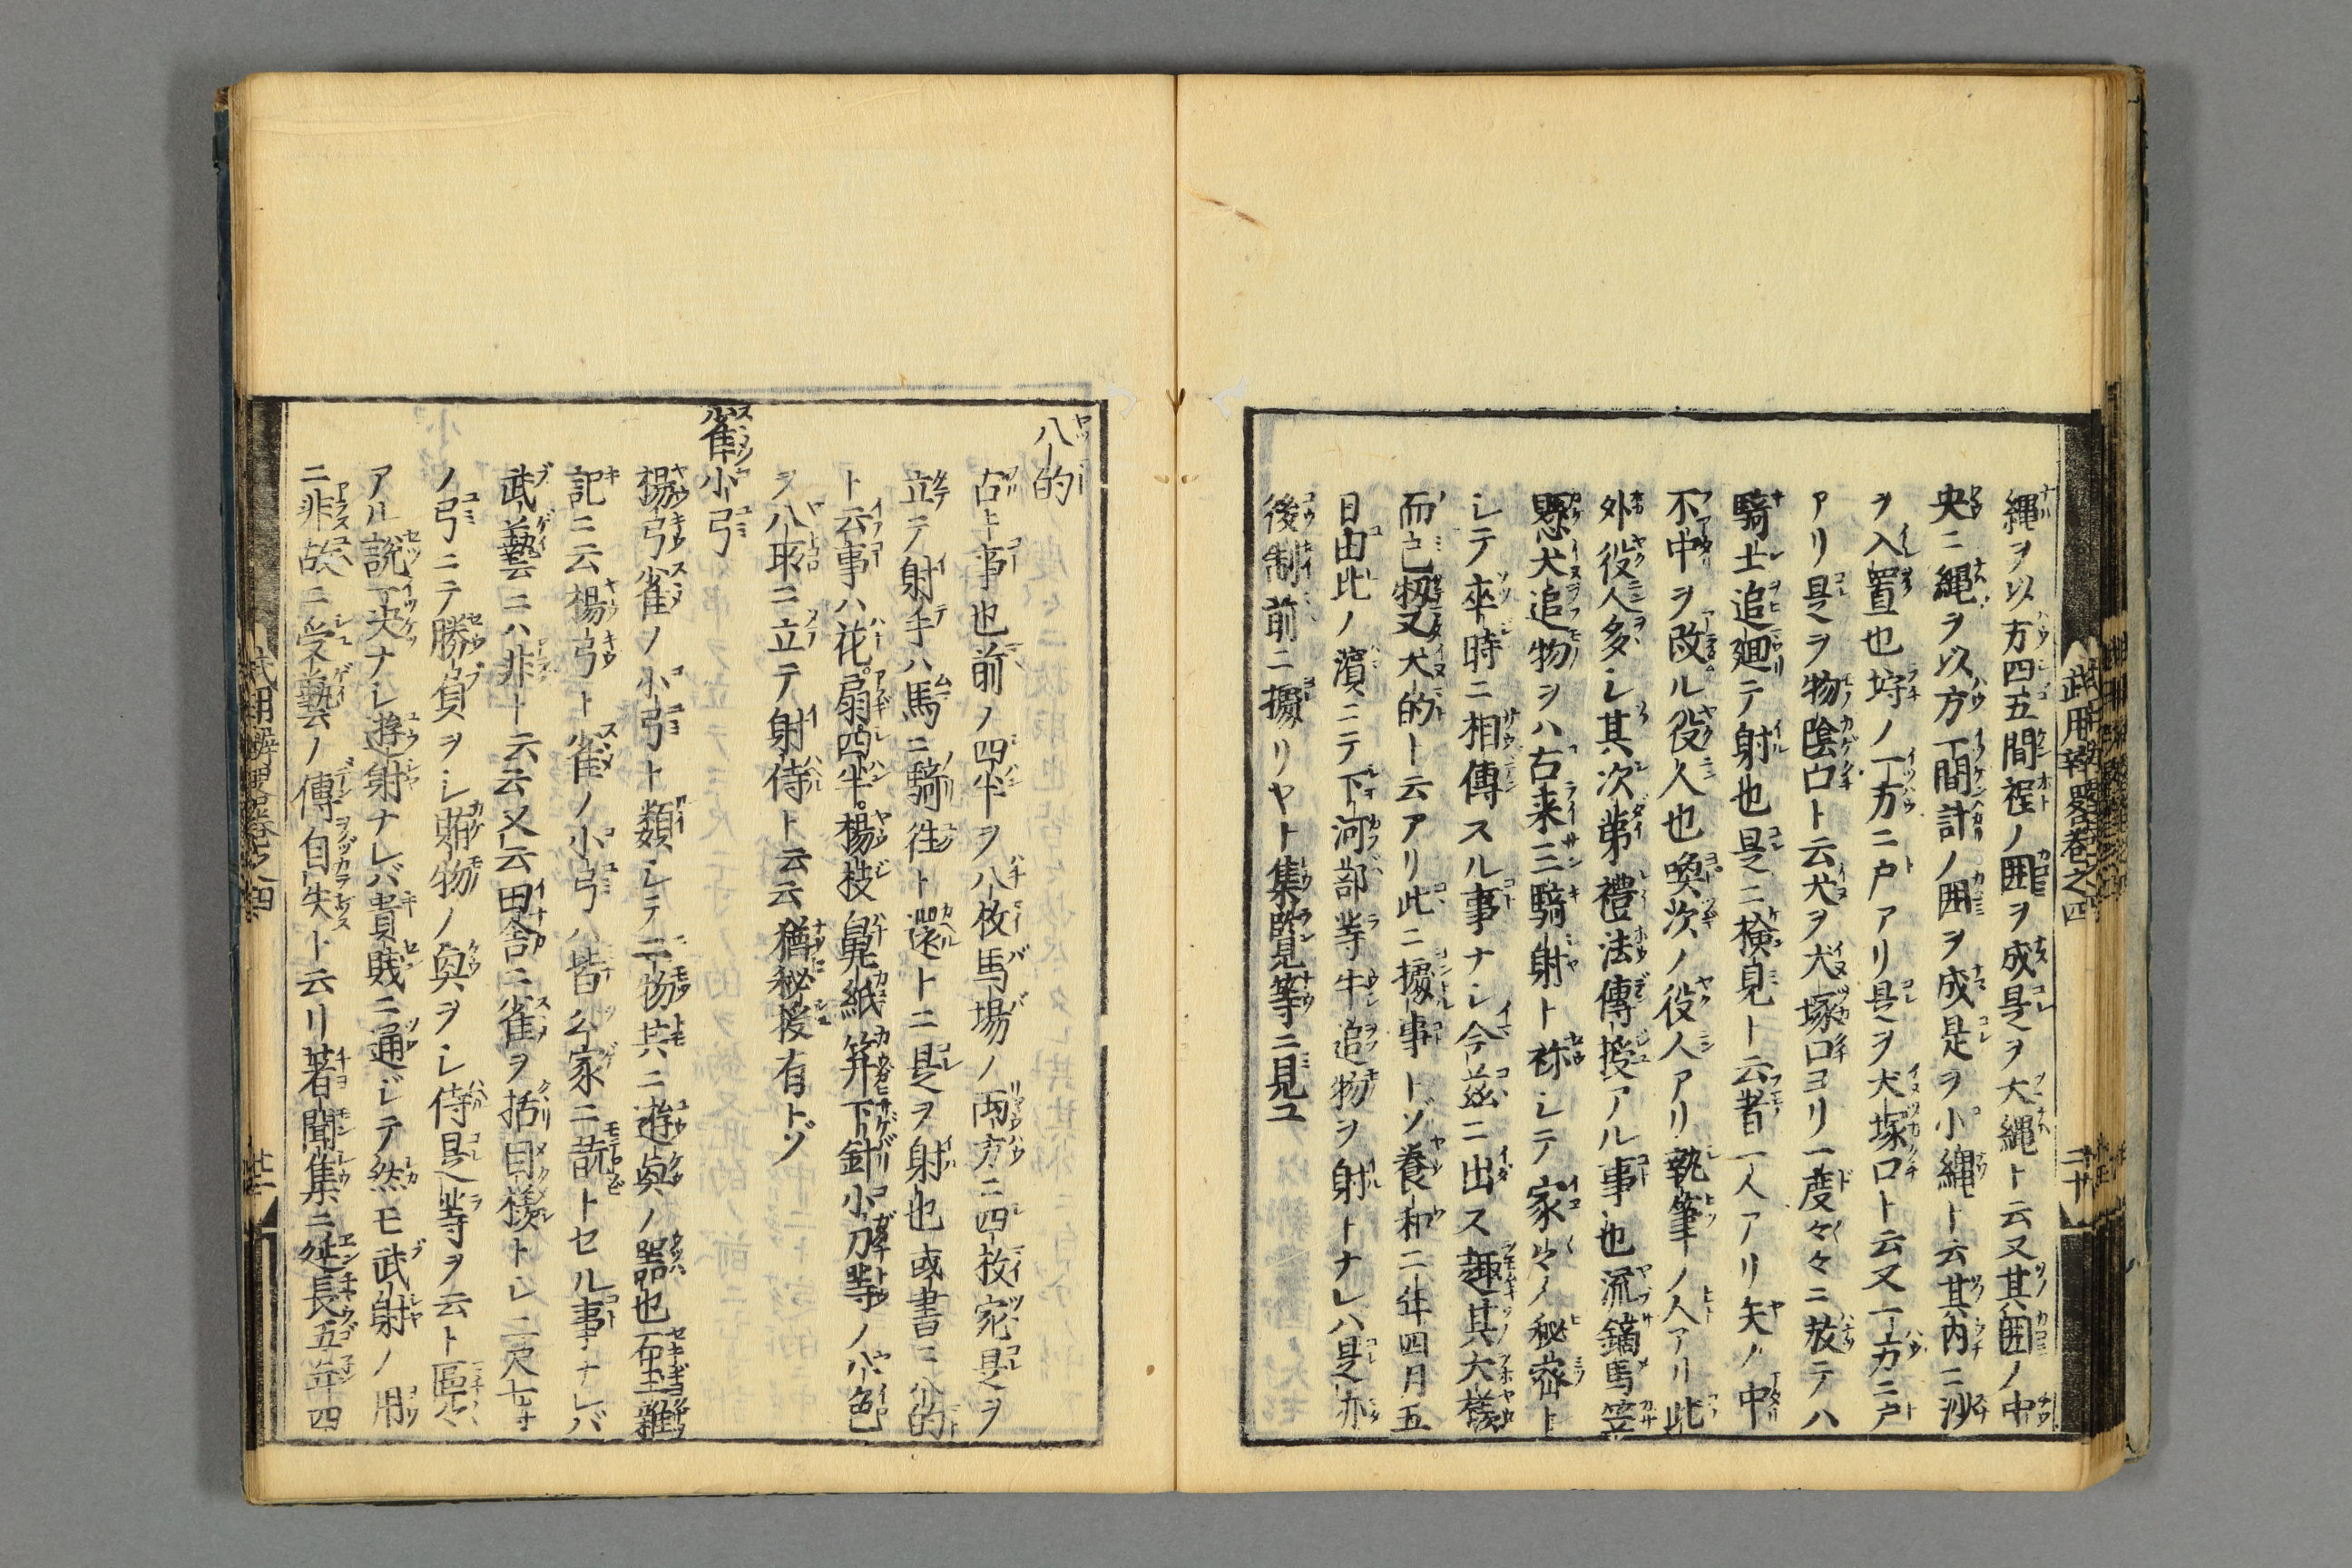 縄ヲ以方四五間程ノ囲ヲ成是ヲ大縄ト云又其囲ノ中
央ニ縄ヲ以方一間計ノ囲ヲ成是ヲ小縄ト云其内ニ沙
ヲ入置也埒ノ一方ニ戸アリ是ヲ犬塚口ト云又一方ニ戸
アリ是ヲ物陰口ト云犬ヲ犬塚口ヨリ一度々々ニ放テハ
騎士追廻テ射也是ニ検見ト云者一人アリ矢ノ中
不中ヲ改ル役人也喚次ノ役人アリ執筆ノ人アリ此
外役人多シ其次第禮法傳授アル事也流鏑馬笠
懸犬追物ヲハ古来三騎射ト称シテ家々ノ秘密ト
シテ卒時ニ相傳スル事ナシ今茲ニ出ス趣其大様
而已扨又犬的ト云アリ此ニ據事トゾ養和二年四月五
日由比ノ濱ニテ下河部等牛追物ヲ射トナレバ是亦
後制前ニ據リヤト集覧等ニ見ユ
武用辨畧巻之四
二十
八的
古キ事也前ノ四半ヲ八枚馬場ノ両方ニ四枚宛是ヲ
立テ射手ハ馬ニ騎往ト還トニ是ヲ射也或書ニ八的
ト云事ハ花扇四半楊枝鼻紙笄下針小刀等ノ八色
ヲ八所ニ立テ射侍ト云云猶秘授有トゾ
雀小弓
楊弓雀ノ小弓ト類シテ二物共ニ遊興ノ器也
記ニ云楊弓ト雀ノ小弓ハ皆公家ニ翫トセル事ナレバ
武藝ニハ非ト云云又云田舎ニ雀ヲ括目様トシ二尺七寸
ノ弓ニテ勝負ヲシ賭物ノ興ヲシ侍是等ヲ云ト區々
アル説一決ナシ遊射ナレバ貴賤ニ通ジテ然モ武射ノ用
ニ非故ニ受藝ノ傳自失ト云リ著聞集ニ延長五年四
武用辨畧巻之四